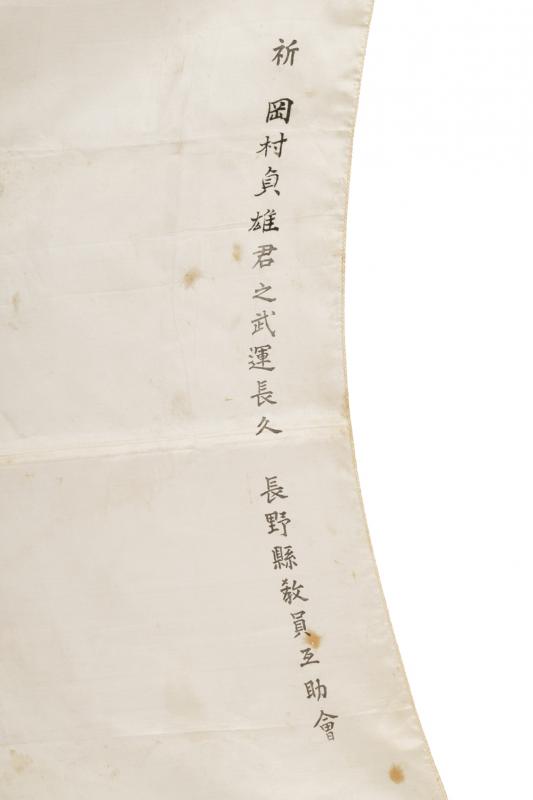 祈 岡村貞雄君之武運長久 長野縣教員互助會